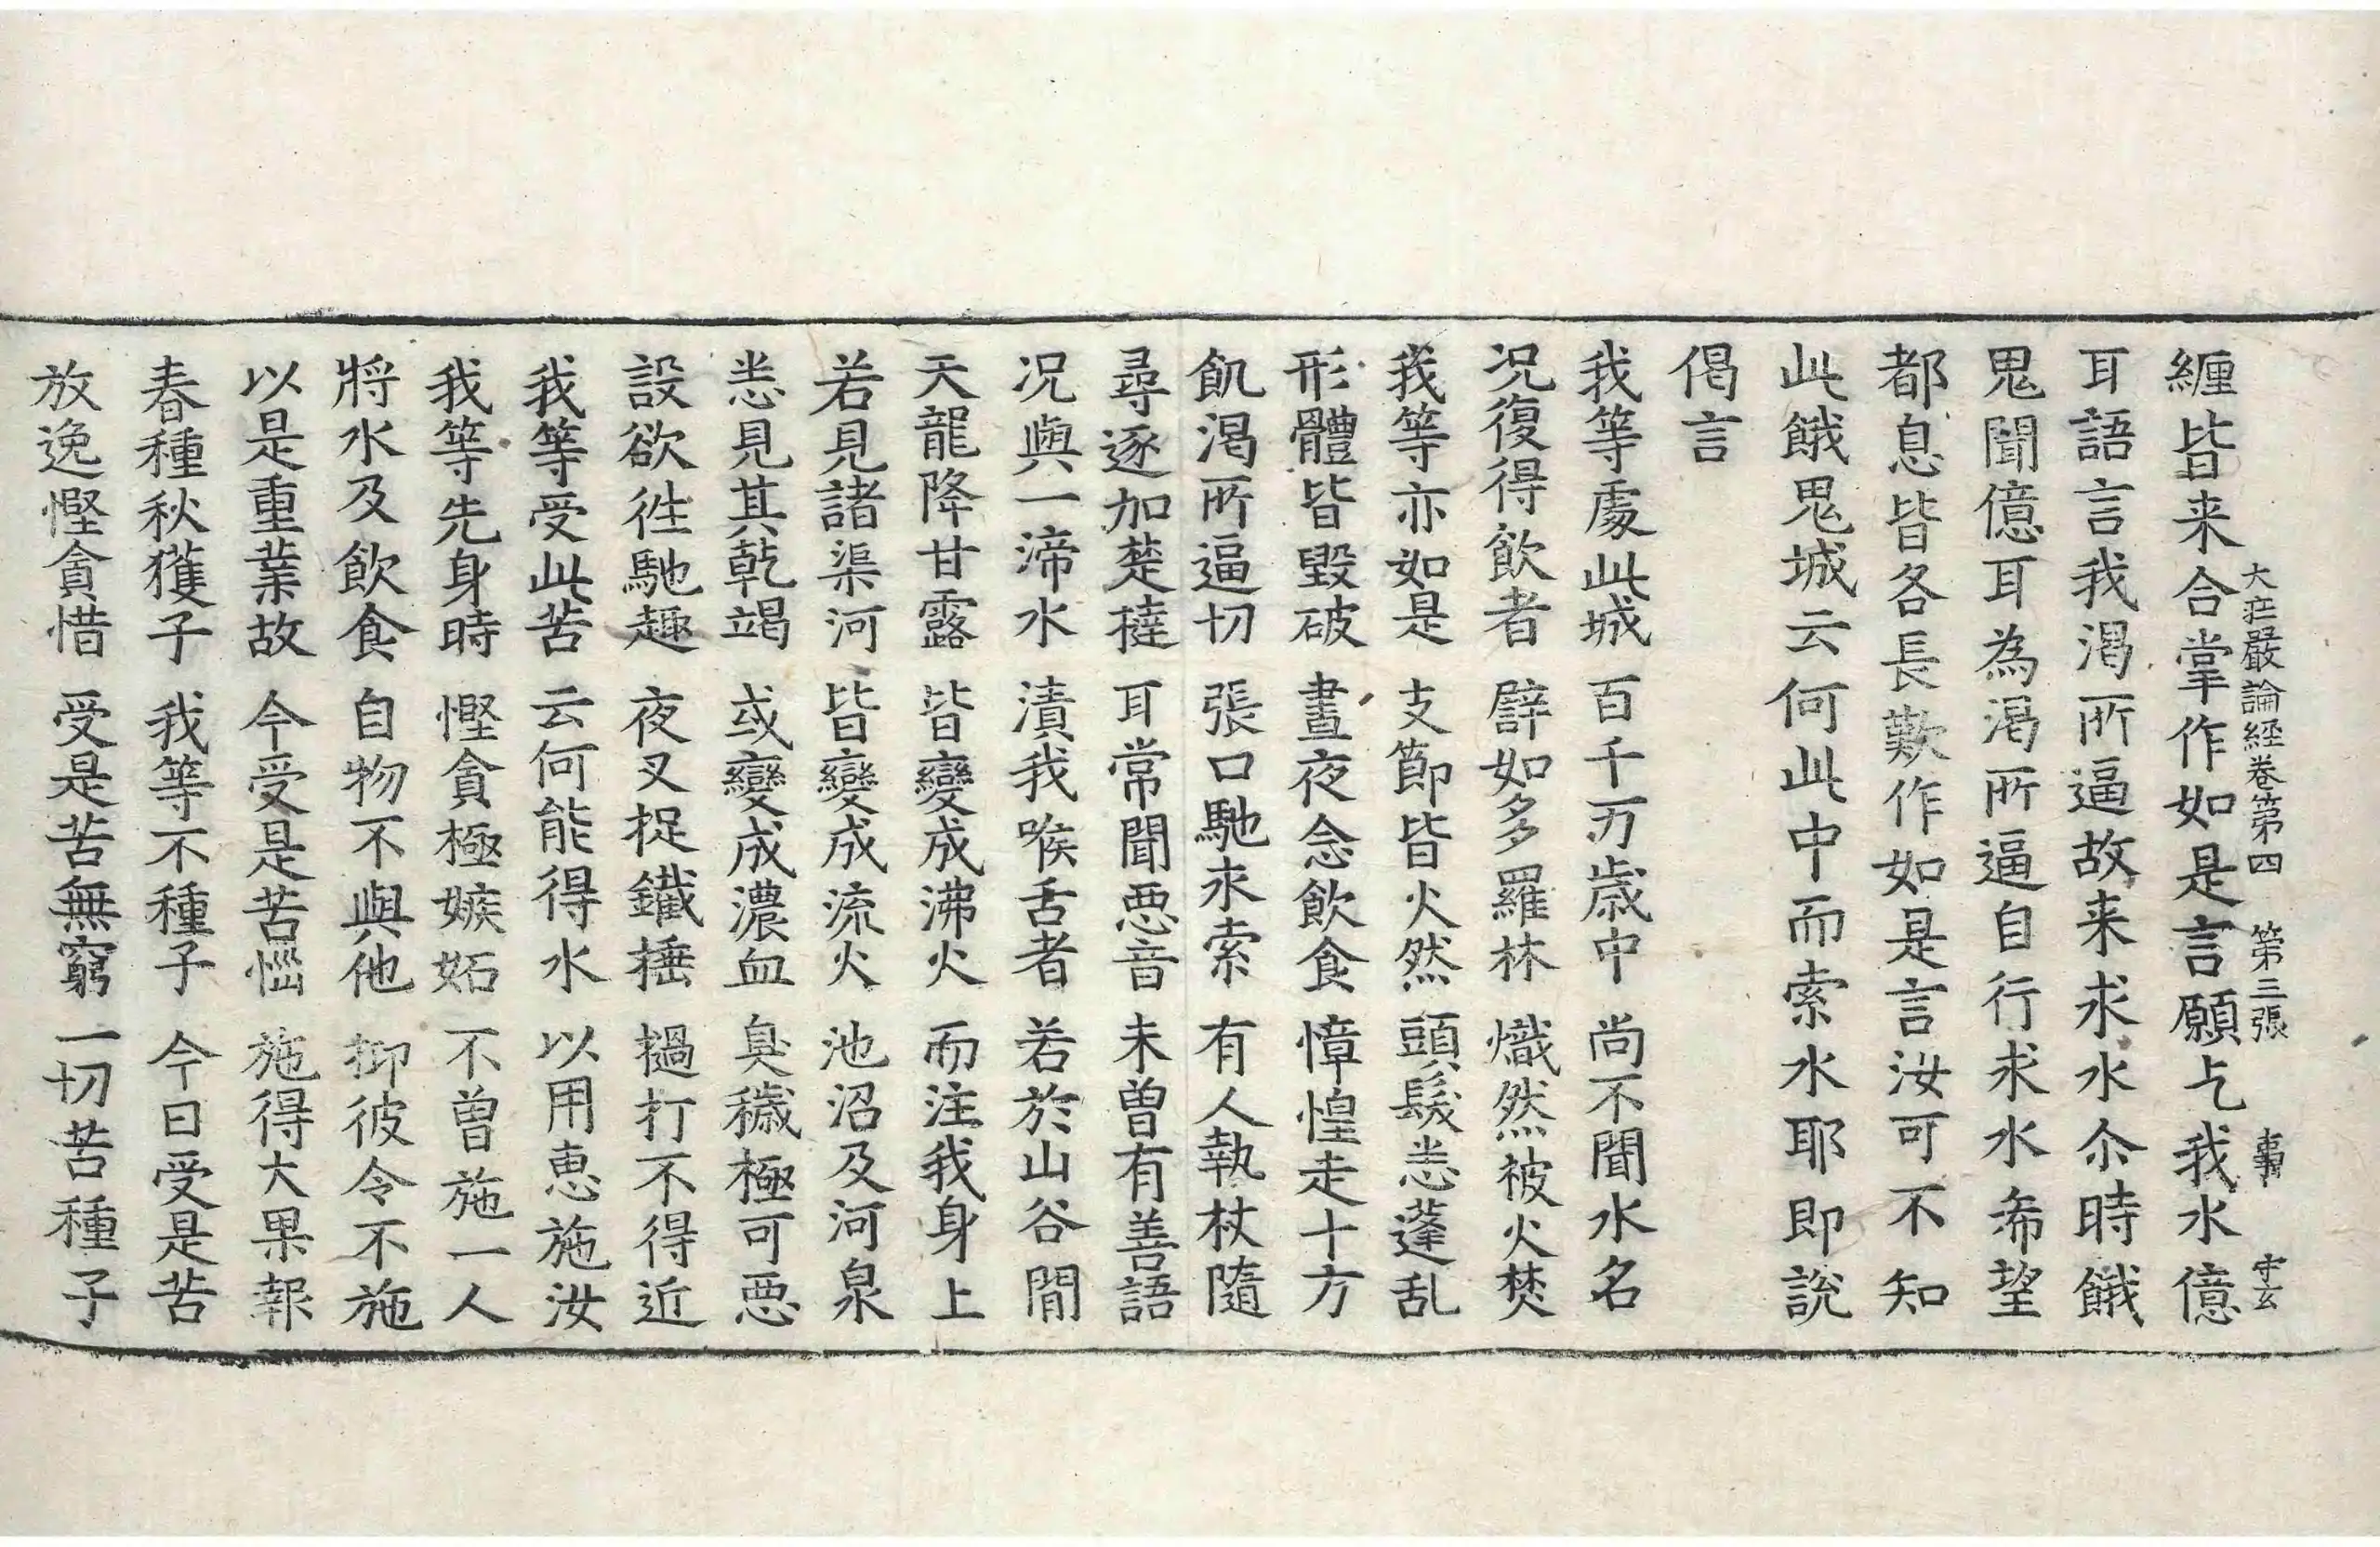 大庄嚴論経卷第四 第三張 事 守玄
纒皆来合掌作如是言願乞我水億
耳語言我渴所逼故来求水尒時餓
鬼聞億耳為渴所逼自行求水希望
都息皆各長歎作如是言汝可不知
此餓鬼城云何此中而索水耶即說
偈言
我等處此城 百千万歳中 尚不聞水名
况復得飲者 譬如多羅林 熾然被火焚
我等亦如是 支節皆火然 頭髮悉蓬乱
形體皆毀破 晝夜念飲食 慞惶走十方
飢渴所逼切 張口馳求索 有人執杖隨
尋逐加楚撻 耳常聞惡音 未曽有善語
况與一渧水 漬我喉舌者 若於山谷間
天龍降甘露 皆變成沸火 而注我身上
若見諸渠河 皆變成流火 池沼及河泉
悉見其乾竭 或變成濃血 臭穢極可惡
設欲徃馳趣 夜叉捉鐵捶 撾打不得近
我等受此苦 云何能得水 以用恵施汝
我等先身時 慳貪極嫉妬 不曽施一人
將水及飲食 自物不與他 抑彼令不施
以是重業故 今受是苦惱 施得大果報
春種秋獲子 我等不種子 今日受是苦
放逸慳貪惜 受是苦無窮 一切苦種子